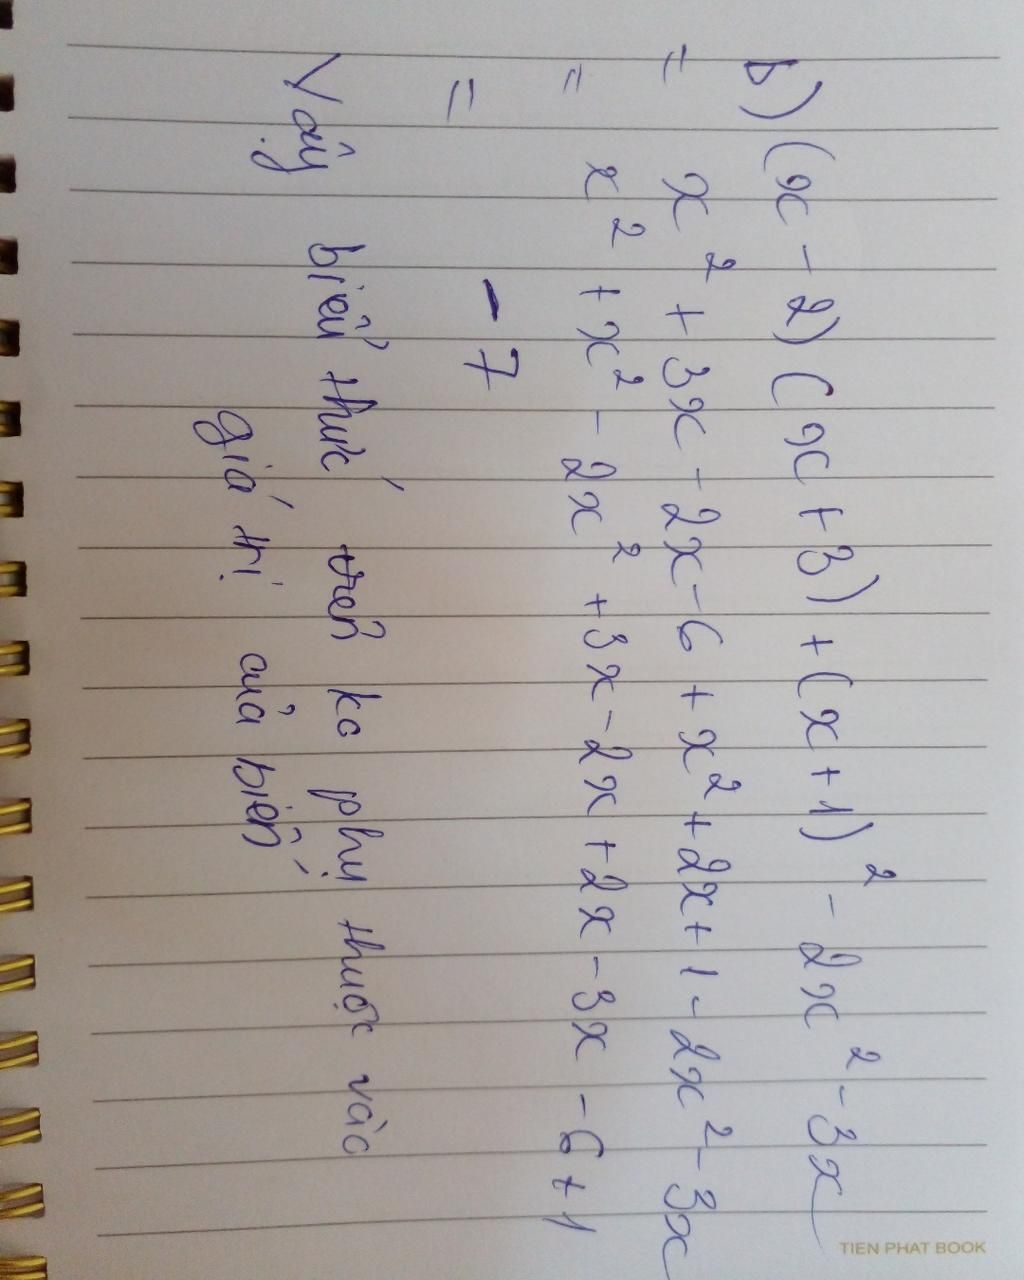 b) (x - 2) (x + 3) + (x + 1)² - 2x² - 3x
= x² + 3x - 2x - 6 + x² + 2x + 1 - 2x² - 3x
= x² + x² - 2x² + 3x - 2x + 2x - 3x - 6 + 1
= - 7
Vậy biểu thức trên ko phụ thuộc vào
giá trị của biến
TIEN PHAT BOOK